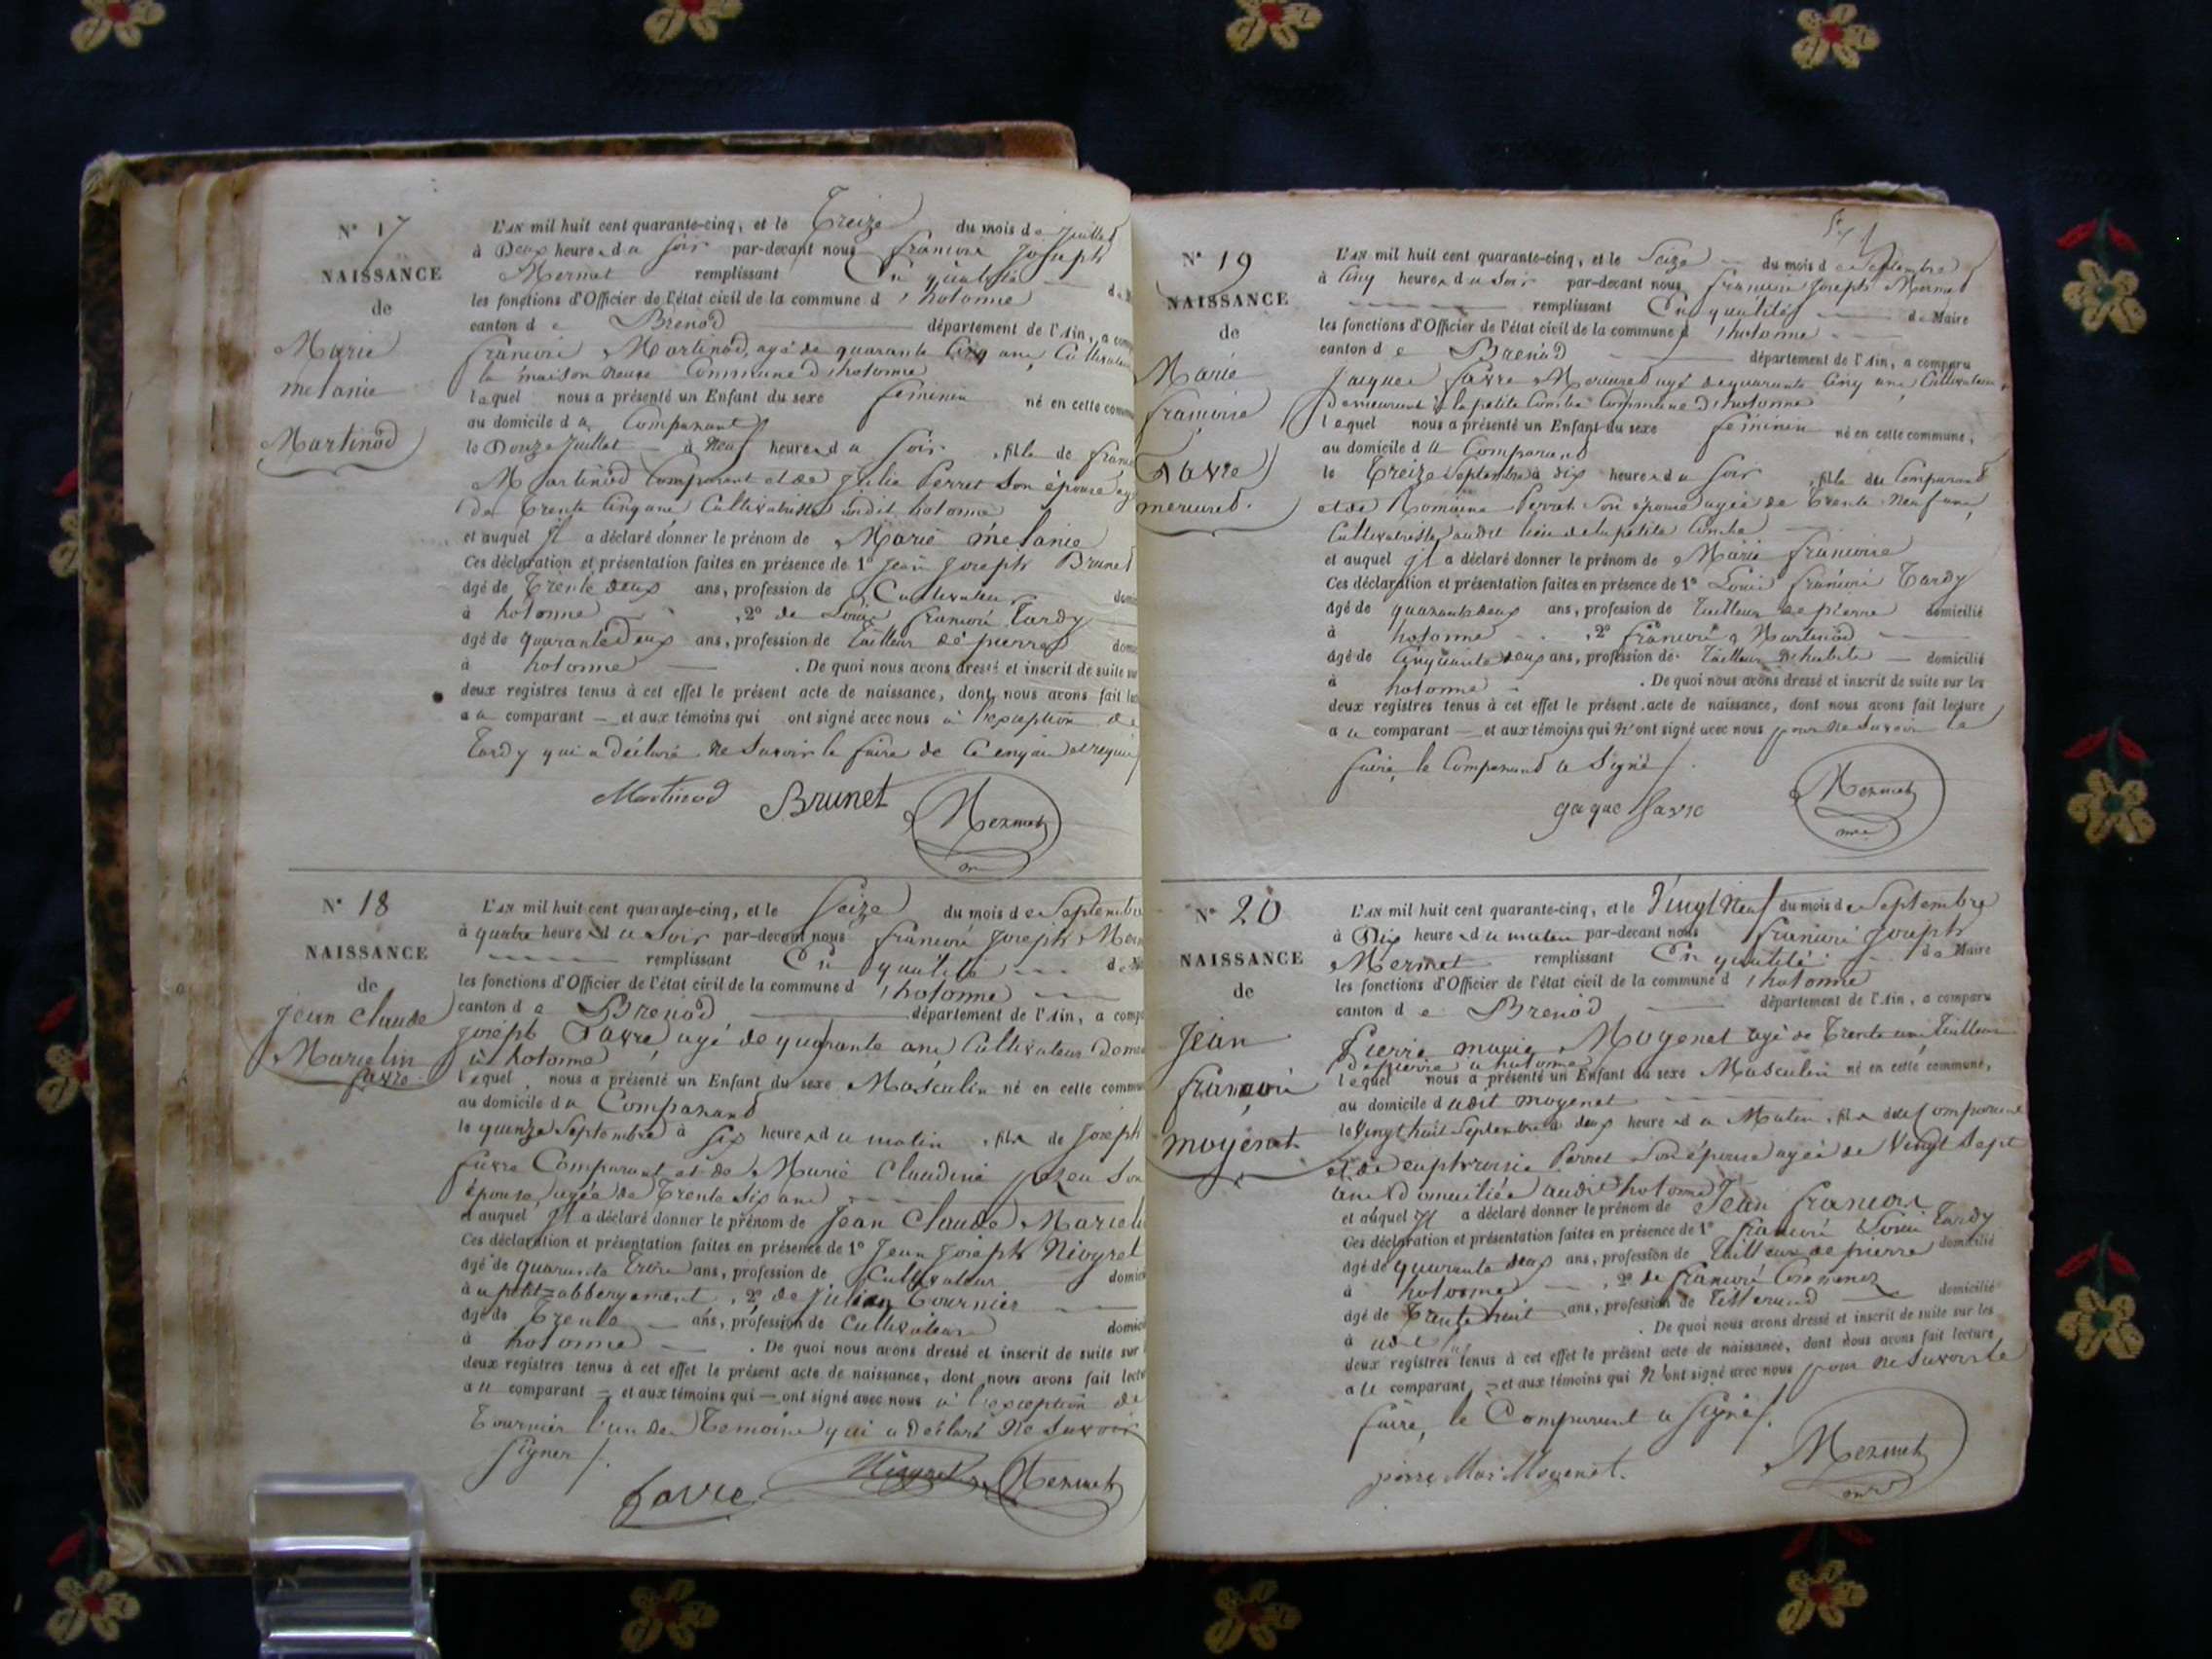 N° 17
NAISSANCE
de
Marie
melanie
Martinod
L'AN mil huit cent quarante-cinq, et le Treize du mois de Juillet
à Deux heures du Soir par-devant nous françois Joseph
Mermet remplissant En qualité de
les fonctions d'Officier de l'état civil de la commune d'hotonne
canton de Brenod département de l'Ain, a
françois Martinod, agé de quarante Cinq ans, Cultivateur
la maison neuve Commune d'hotonne
lequel nous a présenté un Enfant du sexe féminin né en cette
au domicile du Comparant
le Douze Juillet à Neuf heures du Soir, fille de
Martinod Comparant et de Julie Perret Son épouse
de Trente Cinq ans Cultivatrice hotonne
et auquel Il a déclaré donner le prénom de Marie mélanie
Ces déclaration et présentation faites en présence de 1° Jean Joseph Brunet
âgé de Trente deux ans, profession de Cultivateur
à hotonne, 2° de Louis françois Tardy
âgé de quarante Deux ans, profession de Tailleur de pierres
à hotonne. De quoi nous avons dressé et inscrit de suite sur
deux registres tenus à cet effet le présent acte de naissance, dont nous avons fait
au comparant et aux témoins qui ont signé avec nous à l'exception de
Tardy qui a déclaré ne Savoir le faire de Ce enquis et requis
Martinod Brunet Mermet
N° 18
NAISSANCE
de
Jean Claude
Marcelin
favre
L'AN mil huit cent quarante-cinq, et le Seize du mois de Septembre
à quatre heures du Soir par-devant nous françois Joseph
remplissant En qualité
les fonctions d'Officier de l'état civil de la commune d'hotonne
canton de Brenod département de l'Ain, a
Joseph favre agé de quarante ans Cultivateur
à hotonne
lequel nous a présenté un Enfant du sexe Masculin né en cette
au domicile du Comparant
le quinze Septembre à Six heures du matin, fils de Joseph
favre Comparant et de Marie Claudine Son
épouse, agée de Trente Six ans
et auquel Il a déclaré donner le prénom de Jean Claude
Ces déclaration et présentation faites en présence de 1° Jean Joseph Nivyret
âgé de quarante Trois ans, profession de Cultivateur
au petit-abbergement, 2° de Julien Tournier
âgé de Trente ans, profession de Cultivateur
à hotonne. De quoi nous avons dressé et inscrit de suite sur
deux registres tenus à cet effet le présent acte de naissance, dont nous avons fait
au comparant et aux témoins qui ont signé avec nous à l'exception de
Tournier l'un des Temoins qui a Déclaré Ne Savoir
Signer
favre Mermet
N° 19
NAISSANCE
de
Marie
françoise
favre
mercuret
L'AN mil huit cent quarante-cinq, et le Seize du mois de Septembre
à Cinq heures du Soir par-devant nous françois Joseph Mermet
remplissant En qualités de Maire
les fonctions d'Officier de l'état civil de la commune d'hotonne
canton de Brenod département de l'Ain, a comparu
Jacques favre Mercuret agé de quarante Cinq ans, Cultivateur
Demeurant à la petite Combe Commune d'hotonne
lequel nous a présenté un Enfant du sexe féminin né en cette commune,
au domicile du Comparant
le Treize Septembre à dix heures du Soir, fille du Comparant
et de Romaine Perret Son épouse agée de Trente Neuf ans,
Cultivatrice audit lieu de la petite Combe
et auquel Il a déclaré donner le prénom de Marie françoise
Ces déclaration et présentation faites en présence de 1° Louis françois Tardy
âgé de quarante deux ans, profession de Tailleur de pierre domicilié
à hotonne, 2° françois Martinod
âgé de Cinquante deux ans, profession de Tailleur d'habits domicilié
à hotonne. De quoi nous avons dressé et inscrit de suite sur les
deux registres tenus à cet effet le présent acte de naissance, dont nous avons fait lecture
au comparant et aux témoins qui n'ont signé avec nous pour ne Savoir le
faire, le Comparant a Signé
Jaque favre Mermet
N° 20
NAISSANCE
de
Jean
françois
moyenet
L'AN mil huit cent quarante-cinq, et le Vingt Neuf du mois de Septembre
à Dix heures du matin par-devant nous françois Joseph
Mermet remplissant En qualité de Maire
les fonctions d'Officier de l'état civil de la commune d'hotonne
canton de Brenod département de l'Ain, a comparu
Pierre marie Moyenet agé de Trente ans Tailleur
de pierre à hotonne
lequel nous a présenté un Enfant du sexe Masculin né en cette commune,
au domicile dudit moyenet
le Vingt huit Septembre à deux heures du Matin, fils du Comparant
et de euphrosie Perret Son épouse agée de Vingt Sept
ans domiciliée audit hotonne
et auquel Il a déclaré donner le prénom de Jean françois
Ces déclaration et présentation faites en présence de 1° françois Louis Tardy
âgé de quarante deux ans, profession de Tailleur de pierre domicilié
à hotonne, 2° de françois
âgé de Trente huit ans, profession de Tisserand domicilié
à. De quoi nous avons dressé et inscrit de suite sur les
deux registres tenus à cet effet le présent acte de naissance, dont nous avons fait lecture
au comparant et aux témoins qui n'ont signé avec nous pour ne Savoir le
faire, le Comparant a Signé
pierre Mari Moyenet. Mermet